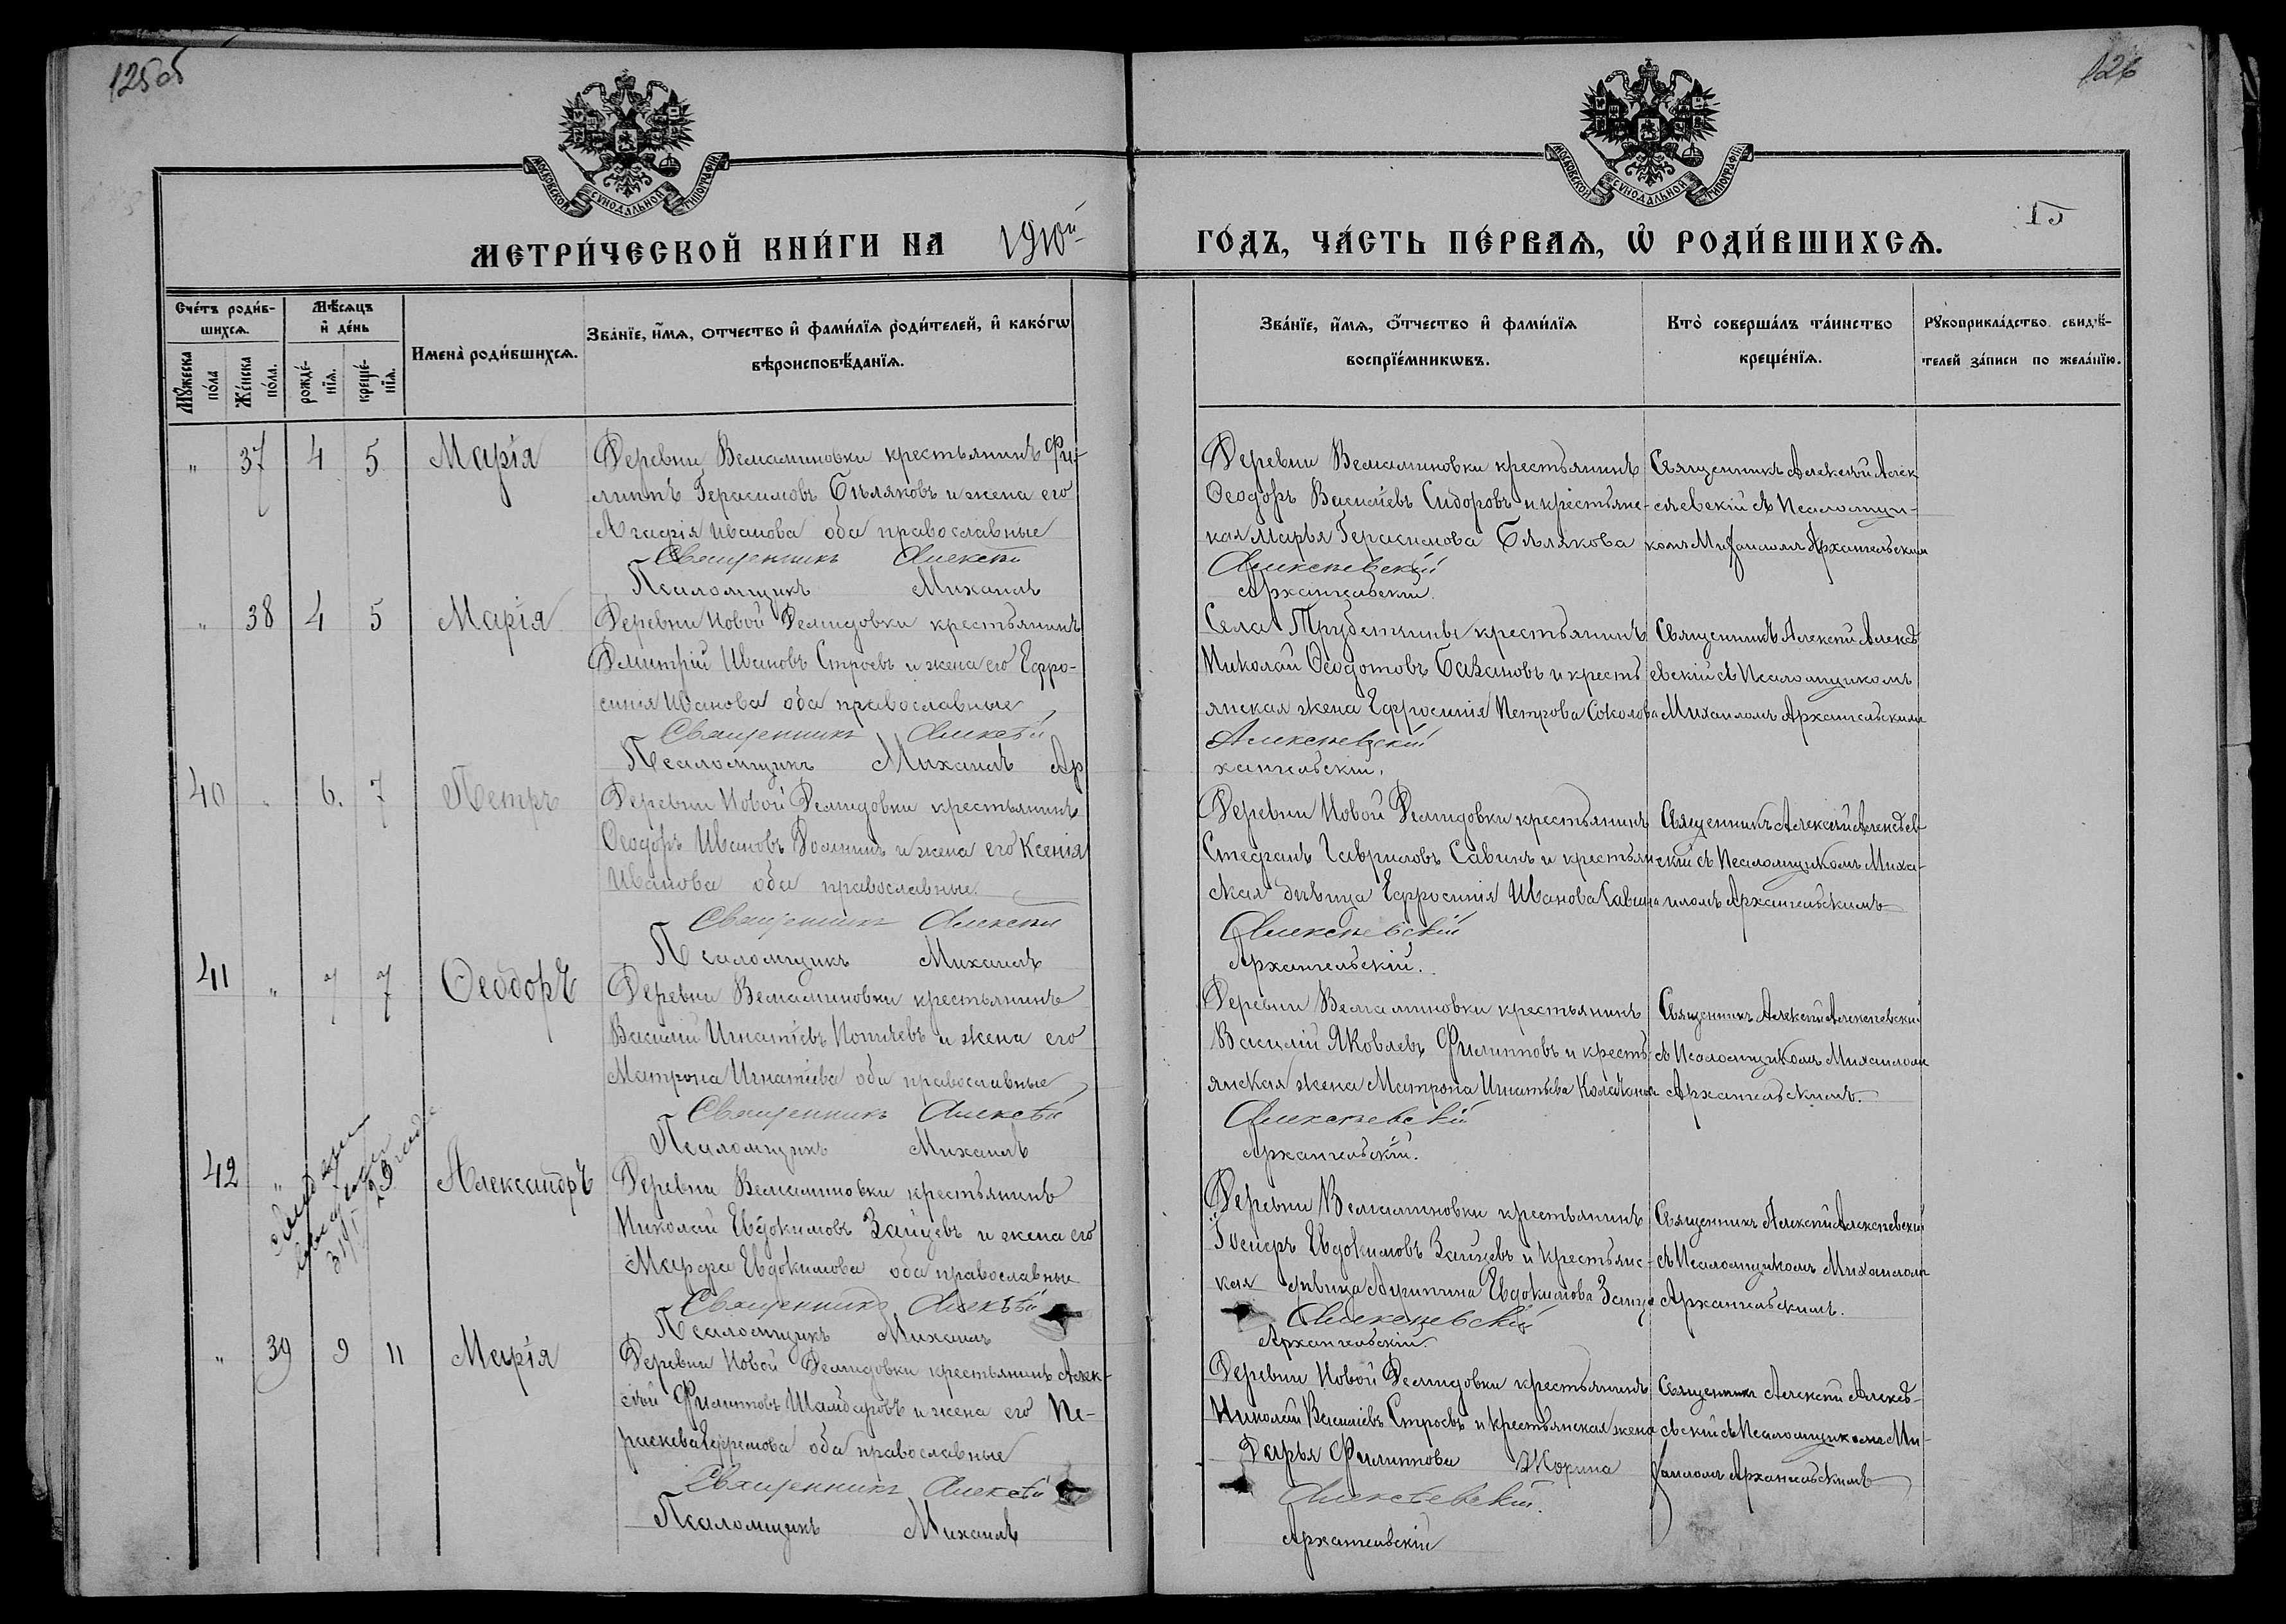 125 об
126
МОСКОВСКОЙ СѴНОДАЛЬНОЙ ТИПОГРАФІИ
МОСКОВСКОЙ СѴНОДАЛЬНОЙ ТИПОГРАФІИ
15
МЕТРИ́ЧЕСКОЙ КНИ́ГИ НА 1910й ГО́ДЪ, ЧА́СТЬ ПЕ́РВАѦ, Ѡ҆ РОДИ́ВШИХСѦ.
Сче́тъ роди́в-
шихсѧ.
Мꙋ́жеска
по́ла
Же́нска
по́ла.
Мѣ́сѧцъ
и҆ де́нь
рожде́-
нїѧ.
креще́-
нїѧ.
И҆мена̀ роди́вшихсѧ.
Зва́нїе, и҆́мѧ, ѻ҆́тчество и҆ фами́лїѧ роди́телей, и҆ како́гѡ
вѣроисповѣ́данїѧ.
Зва́нїе, и҆́мѧ, ѻ҆́тчество и҆ фами́лїѧ
воспрїе́мникѡвъ.
Кто̀ соверша́лъ та́инство
креще́нїѧ.
Рꙋкоприкла́дство свидѣ́-
телей за́писи по жела́нїю.
" 37 4 5 Марія
Деревни Вельяминовки крестьянинъ Фи-
липпъ Герасимовъ Бѣляковъ и жена его
Агафія Иванова оба православные
Священникъ Алексѣй
Псаломщикъ Михаилъ
Деревни Вельяминовки крестьянинъ
Ѳеодоръ Васильевъ Сидоровъ и крестьянс-
кая Марья Герасимова Бѣлякова
Алексѣевскій
Архангельскій.
Священникъ Алексѣй Алек
сѣевскій съ Псаломщи-
комъ Михаиломъ Архангельскимъ
" 38 4 5 Марія
Деревни Новой Демидовки крестьянинъ
Дмитрій Ивановъ Строевъ и жена его Ефро-
синія Иванова оба православные
Священникъ Алексѣй
Псаломщикъ Михаилъ Ар
Села Трубетчины крестьянинъ
Николай Ѳеодотовъ Базановъ и кресть
янская жена Ефросинія Петрова Соколова
Алексѣевскій
хангельскій.
Священникъ Алексѣй Алексѣ
евскій съ Псаломщикомъ
Михаиломъ Архангельскимъ
40 " 6. 7 Петръ
Деревни Новой Демидовки крестьянинъ
Ѳеодоръ Ивановъ и жена его Ксенія
Иванова оба православные
Священникъ Алексѣй
Псаломщикъ Михаилъ
Деревни Новой Демидовки крестьянинъ
Стефанъ Гавриловъ Савинъ и крестьян
ская дѣвица Ефросинія Иванова Савина
Алексѣевскій
Архангельскій.
Священникъ Алексѣй Алексѣев
скій съ Псаломщикомъ Миха-
иломъ Архангельскимъ
41 " 7 7 Ѳеодоръ
Деревни Вельяминовки крестьянинъ
Василій Игнатіевъ и жена его
Матрона Игнатіева оба православные
Священникъ Алексѣй
Псаломщикъ Михаилъ
Деревни Вельяминовки крестьянинъ
Василій Яковлевъ Филипповъ и кресть-
янская жена Матрона Игнатьева
Алексѣевскій
Архангельскій.
Священникъ Алексѣй Алексѣевскій
съ Псаломщикомъ Михаиломъ
Архангельскимъ.
42 " 7 9 Александръ
Деревни Вельяминовки крестьянинъ
Николай Евдокимовъ Зайцевъ и жена его
Марфа Евдокимова оба православные
Священникъ Алексѣй
Псаломщикъ Михаилъ
Деревни Вельяминовки крестьянинъ
Іосифъ Евдокимовъ Зайцевъ и крестьянс-
кая дѣвица Агрипина Евдокимова
Алексѣевскій
Архангельскій.
Священникъ Алексѣй Алексѣевскій
съ Псаломщикомъ Михаиломъ
Архангельскимъ.
" 39 9 11 Марія
Деревни Новой Демидовки крестьянинъ Алек-
сѣй Филипповъ и жена его Па-
раскева Ефремова оба православные
Священникъ Алексѣй
Псаломщикъ Михаилъ
Деревни Новой Демидовки крестьянинъ
Николай Василіевъ Строевъ и крестьянская жена
Дарья Филиппова Жорина
Алексѣевскій.
Архангельскій
Священникъ Алексѣй Алексѣ-
евскій съ Псаломщикомъ Ми-
хаиломъ Архангельскимъ